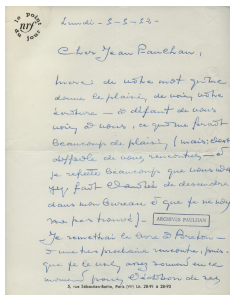 le point du jour
nrf
Lundi - 3-5-54 -
Cher Jean Paulhan,
Merci de votre mot qui me
donne le plaisir, de voir votre
écriture - à défaut de vous
voir, vous, ce qui me ferait
beaucoup de plaisir (mais c'est
difficile de vous rencontrer - et
je regrette beaucoup que vous
fait l'autre de descendre
dans mon Bureau et que je ne
me pas trouvé) -
ARCHIVES PAULHAN
Je remettrai le livre à
à une très prochaine rencontre, puis-
que je le vois assez souvent en ce
moment pour de ses
5, rue Sébastien-Bottin, Paris (VIIe) Lit. 28-91 à 28-93